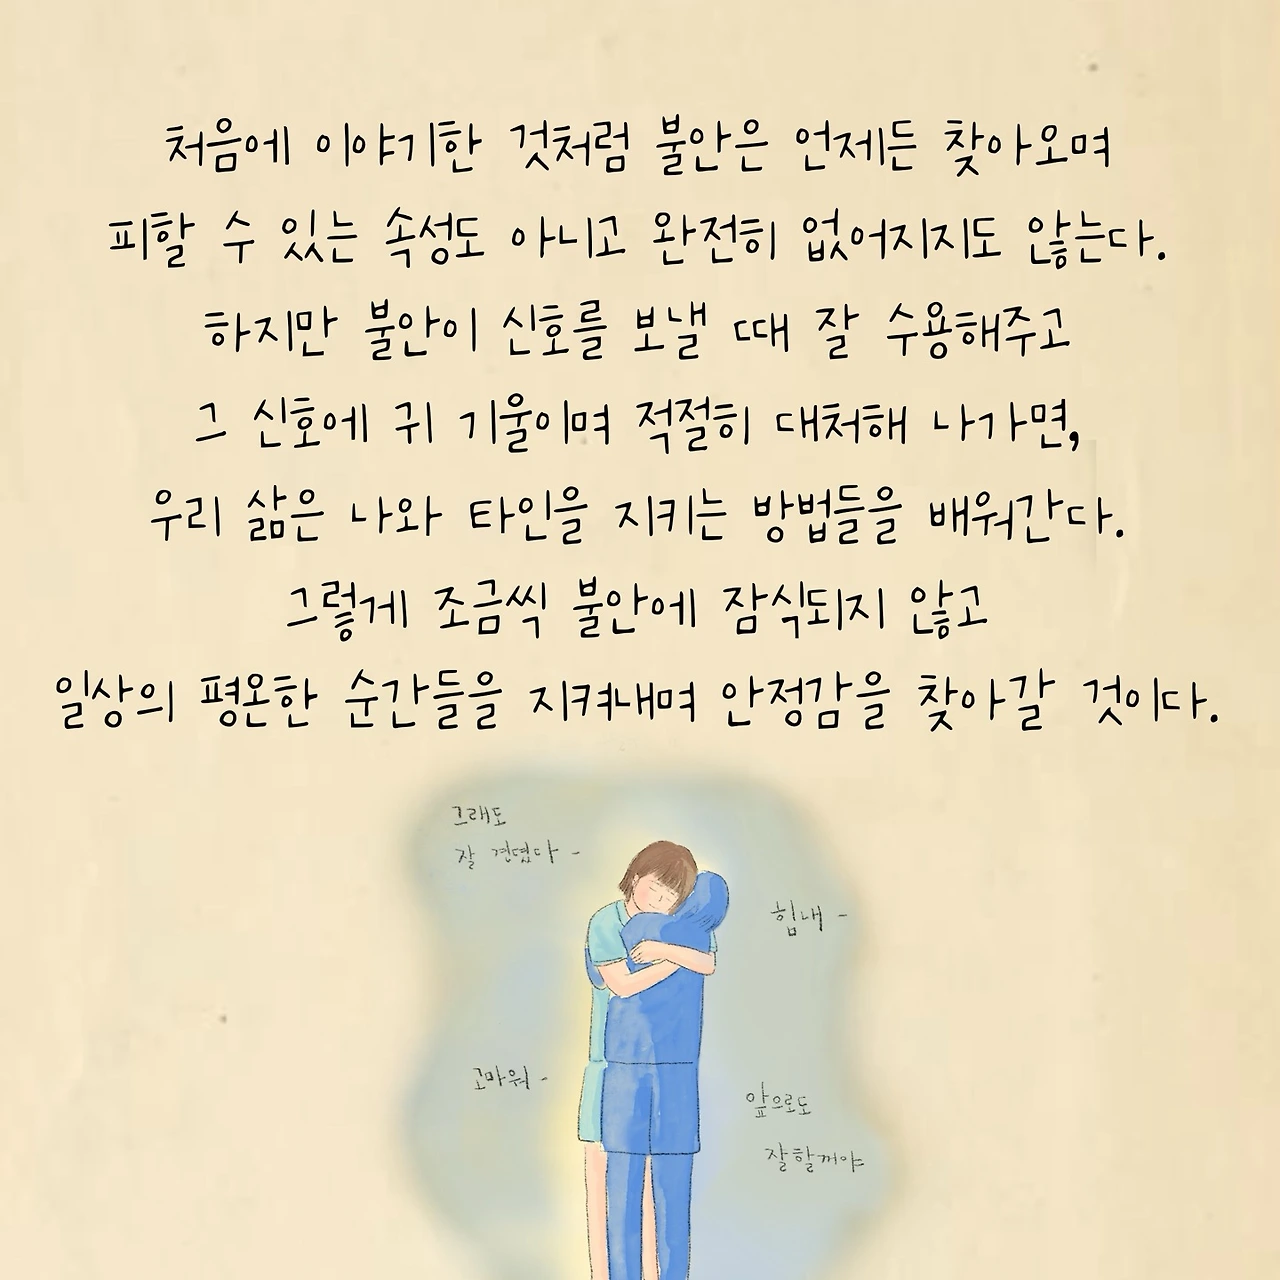 처음에 이야기한 것처럼 불안은 언제든 찾아오며
피할 수 있는 속성도 아니고 완전히 없어지지도 않는다.
하지만 불안이 신호를 보낼 때 잘 수용해주고
그 신호에 귀 기울이며 적절히 대처해 나가면,
우리 삶은 나와 타인을 지키는 방법들을 배워간다.
그렇게 조금씩 불안에 잠식되지 않고
일상의 평온한 순간들을 지켜내며 안정감을 찾아갈 것이다.
그래도
잘 견뎠다 -
힘내 -
고마워 -
앞으로도
잘할꺼야